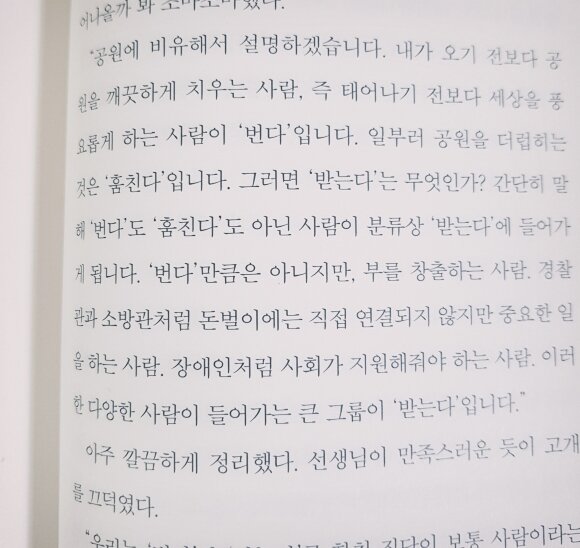 어나올까 봐 조마조마했다.
“공원에 비유해서 설명하겠습니다. 내가 오기 전보다 공
원을 깨끗하게 치우는 사람, 즉 태어나기 전보다 세상을 풍
요롭게 하는 사람이 ‘번다’입니다. 일부러 공원을 더럽히는
것은 ‘훔친다’입니다. 그러면 ‘받는다’는 무엇인가? 간단히 말
해 ‘번다’도 ‘훔친다’도 아닌 사람이 분류상 ‘받는다’에 들어가
게 됩니다. ‘번다’만큼은 아니지만, 부를 창출하는 사람. 경찰
관과 소방관처럼 돈벌이에는 직접 연결되지 않지만 중요한 일
을 하는 사람. 장애인처럼 사회가 지원해줘야 하는 사람. 이러
한 다양한 사람이 들어가는 큰 그룹이 ‘받는다’입니다.”
아주 깔끔하게 정리했다. 선생님이 만족스러운 듯이 고개
를 끄덕였다.
“우리는 집단의 보통 사람이라는